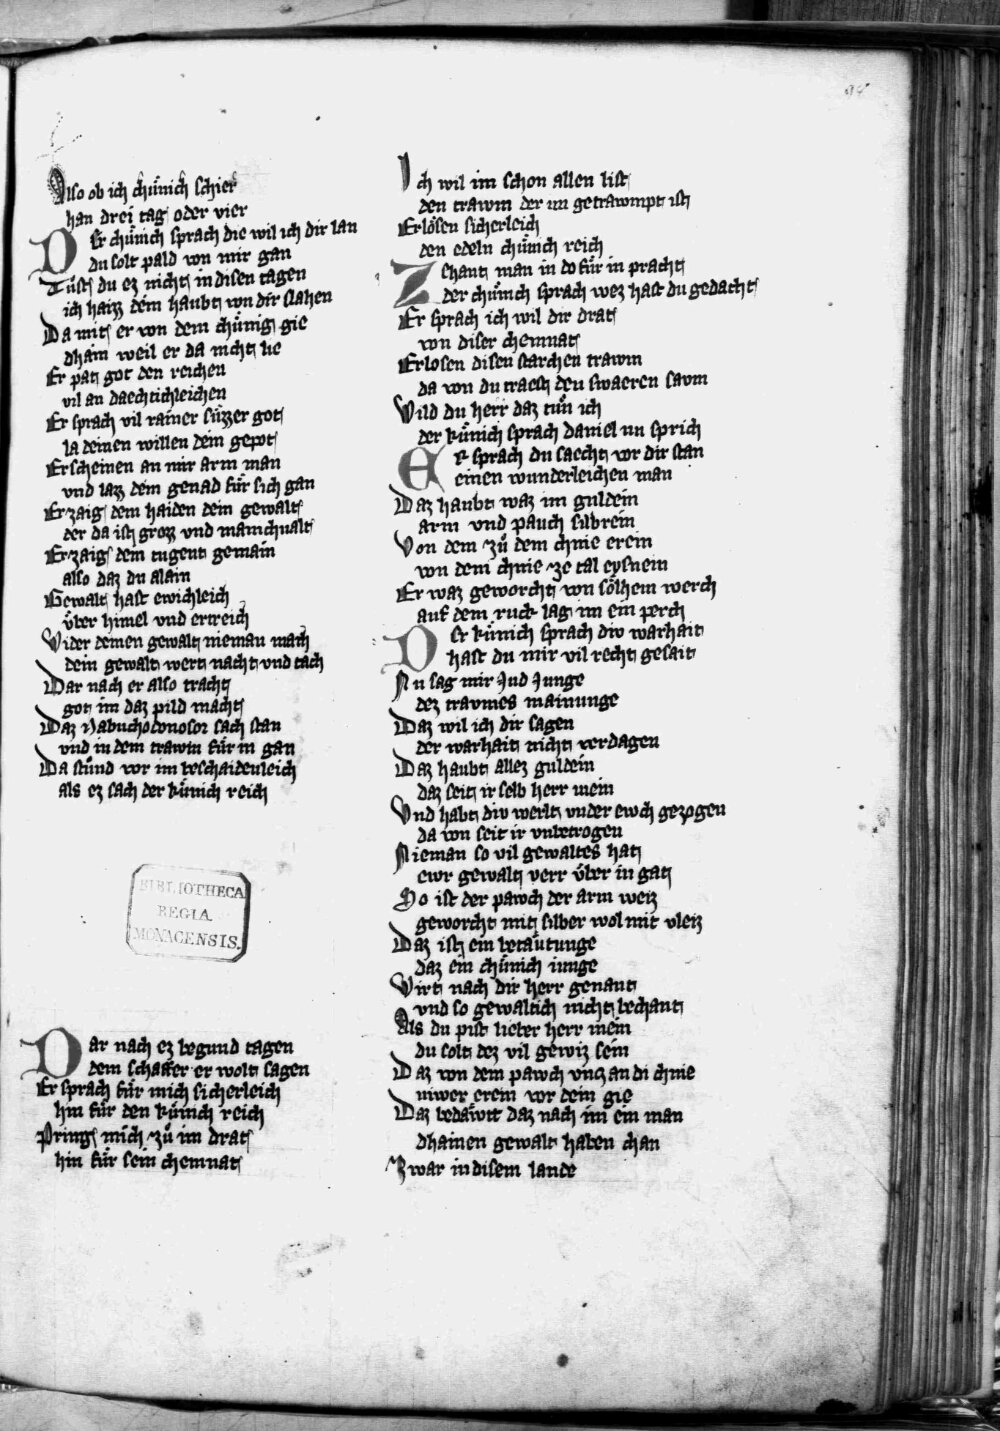 Also ob ich chuͤnich schier
han drei tag oder vier
Der chuͤnich sprach die wil ich dir lan
du solt pald von mir gan
Tuͤst du ez nicht in disen tagen
ich haizz dem haubt von dir slahen
Da mit er von dem chuͤnig gie
dhain weil er da nicht lie
Er pat got den reichen
vil an daechtichleichen
Er sprach vil rainer suͤzzer got
la deinen willen dein gepot
Erscheinen an mir arm man
vnd lazz dein genad fuͤr sich gan
Erzaig dem haiden dein gewalt
der da ist grozz vnd manichualt
Erzaig dein tugent gemain
also daz du alain
Gewalt hast ewichleich
vͤber himel vnd ertreich
Wider deinen gewalt nieman mach
dein gewalt wert nacht vnd tach
Dar nach er also tracht
got im daz pild macht
Daz Nabuchodonosor sach stan
vnd in dem trawm fuͤr in gan
Da stuͤnd vor im beschaidenleich
als ez sach der kuͤnich reich
BIBLIOTHECA
REGIA
MONACENSIS.
Dar nach ez begund tagen
dem schaffer er wolt sagen
Er sprach fuͤr mich sicherleich
hin fuͤr den kuͤnich reich
Pring mich zuͤ im drat
hin fuͤr sein chemnat
Ich wil im schon allen list
den trawm der im getrawmpt ist
Erloͤsen sicherleich
den edeln chuͤnich reich
Zehant man in do fuͤr in pracht
der chuͤnich sprach wez hast du gedacht
Er sprach ich wil dir drat
von diser chemnat
Erlosen disen starchen trawm
da von du traest den swaeren savm
Wild du herr daz tuͤn ich
der kuͤnich sprach daniel nu sprich
Er sprach du saecht vor dir stan
einen wunderleichen man
Daz haubt waz im guldein
arm vnd pauch silbrein
Von dem zuͤ dem chnie erein
von dem chnie ze tal eysnein
Er waz geworcht von soͤlhem werch
auf dem ruck lag im ein perch
Der kuͤnich sprach div warhait
hast du mir vil recht gesait
Nu sag mir Jud Junge
dez travmes mainunge
Daz wil ich dir sagen
der warhait nicht verdagen
Daz haubt allez guldein
daz seit ir selb herr mein
Vnd habt div werlt vnder ewch gezogen
da von seit ir vnbetrogen
Nieman so vil gewaltes hat
ewr gewalt verr vͤber in gat
So ist der pawch der arm weiz
geworcht mit silber wol mit vleiz
Daz ist ein betaͤutunge
daz ein chuͤnich iunge
Wirt nach dir herr genant
vnd so gewaltich nicht bechant
Als du pist lieber herr mein
du solt dez vil gewiz sein
Daz von dem pawch vnz an di chnie
niwer erein vor dein gie
Daz bedaͤwtt daz nach im ein man
dhainen gewalt haben chan
Zwar in disem lande